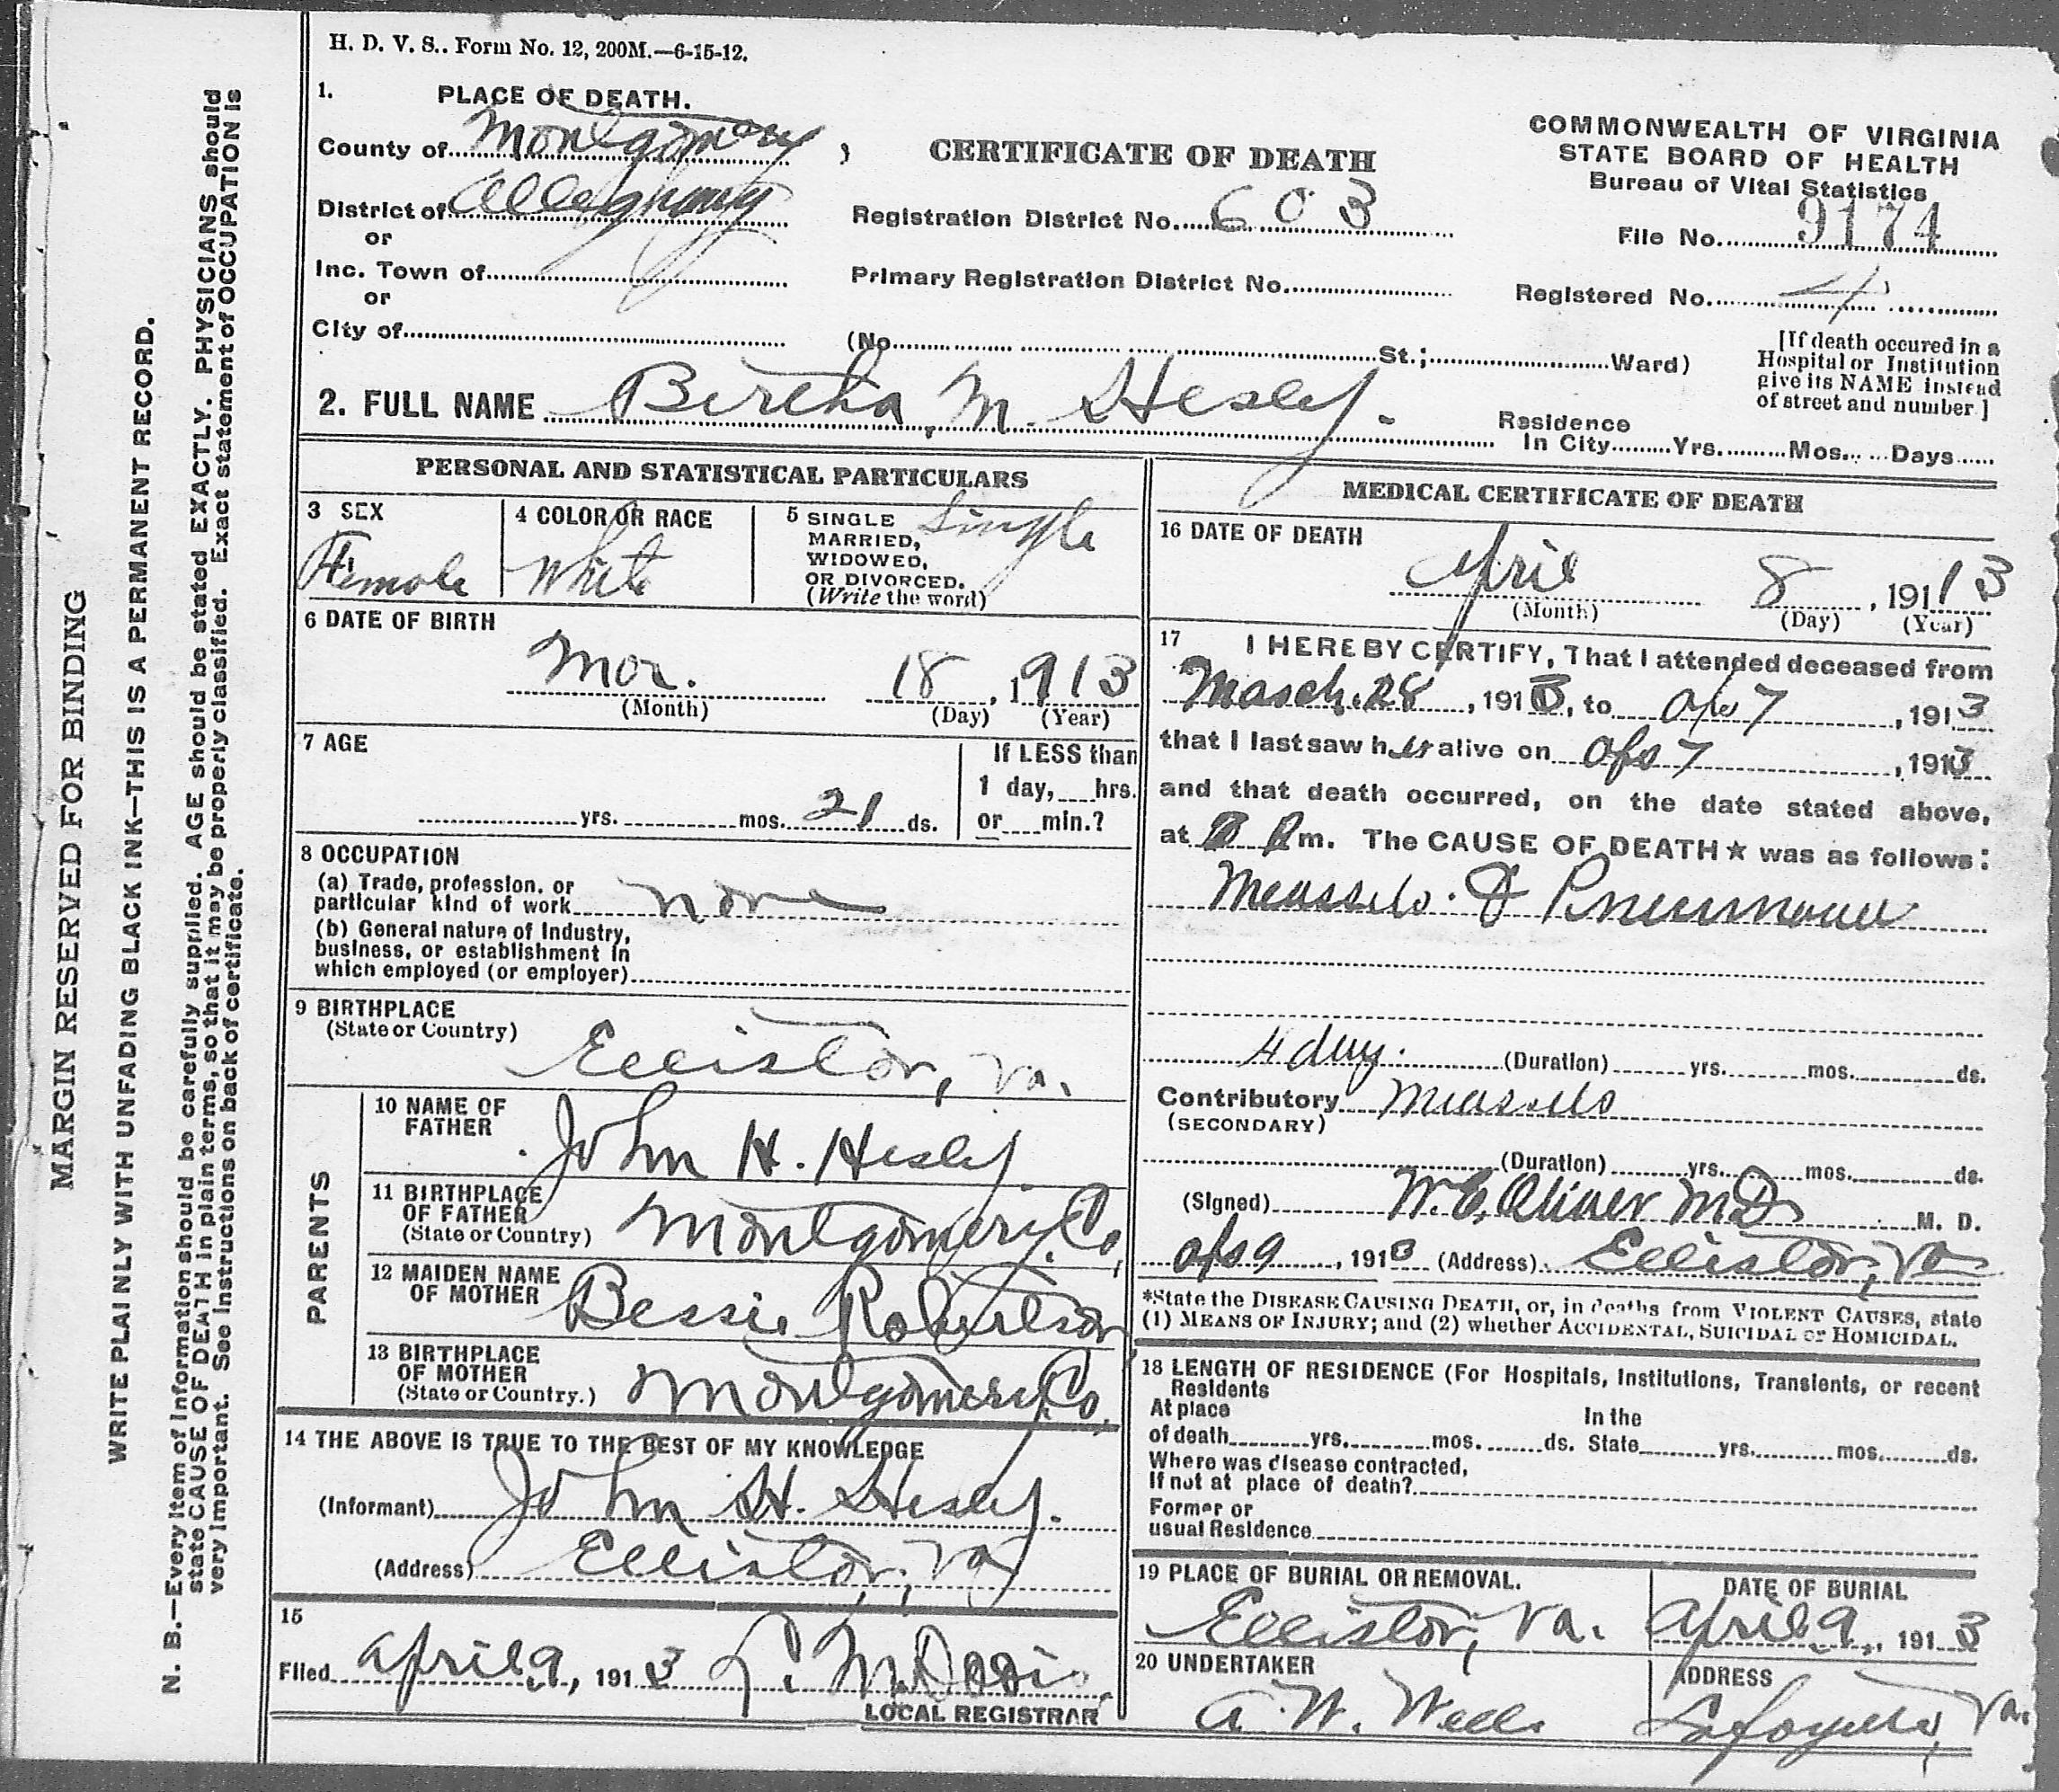 H. D. V. S.. Form No. 12, 200M.—6-15-12.
1. PLACE OF DEATH.
County of Montgomery
District of Alleghany
or
Inc. Town of
or
City of
CERTIFICATE OF DEATH
Registration District No. 603
Primary Registration District No.
(No. St.; Ward)
COMMONWEALTH OF VIRGINIA
STATE BOARD OF HEALTH
Bureau of Vital Statistics
File No. 9174
Registered No. 4
[If death occured in a
Hospital or Institution
give its NAME instead
of street and number.]
2. FULL NAME Bertha M. Hesley.
Residence
In City Yrs. Mos. Days
PERSONAL AND STATISTICAL PARTICULARS
3 SEX
Female
4 COLOR OR RACE
White
5 SINGLE
MARRIED,
WIDOWED,
OR DIVORCED.
(Write the word)
Single
6 DATE OF BIRTH
Mar. 18, 1913
(Month) (Day) (Year)
7 AGE
yrs. mos. 21 ds.
If LESS than
1 day, hrs.
or min.?
8 OCCUPATION
(a) Trade, profession, or
particular kind of work none
(b) General nature of Industry,
business, or establishment in
which employed (or employer)
9 BIRTHPLACE
(State or Country)
Elliston, Va.
PARENTS
10 NAME OF
FATHER
John H. Hesley
11 BIRTHPLACE
OF FATHER
(State or Country) Montgomery Co,
12 MAIDEN NAME
OF MOTHER Bessie Robertson
13 BIRTHPLACE
OF MOTHER
(State or Country.) Montgomery Co.
14 THE ABOVE IS TRUE TO THE BEST OF MY KNOWLEDGE
(Informant) John H. Hesley.
(Address) Elliston, Va
15
Filed April 9, 1913
LOCAL REGISTRAR
MEDICAL CERTIFICATE OF DEATH
16 DATE OF DEATH
April 8, 1913
(Month) (Day) (Year)
17 I HEREBY CERTIFY, That I attended deceased from
March 28, 1913, to Ap 7, 1913
that I last saw her alive on Ap 7, 1913
and that death occurred, on the date stated above,
at m. The CAUSE OF DEATH★ was as follows:
Measels & Pneumonia
4 day. (Duration) yrs. mos. ds.
Contributory Measels
(SECONDARY)
(Duration) yrs. mos. ds.
(Signed) W.E. Oliver M.D. M. D.
Ap 9, 1913 (Address) Elliston, Va
*State the DISEASE CAUSING DEATH, or, in deaths from VIOLENT CAUSES, state
(1) MEANS OF INJURY; and (2) whether ACCIDENTAL, SUICIDAL or HOMICIDAL.
18 LENGTH OF RESIDENCE (For Hospitals, Institutions, Transients, or recent
Residents
At place In the
of death yrs. mos. ds. State yrs. mos. ds.
Where was disease contracted,
If not at place of death?
Former or
usual Residence
19 PLACE OF BURIAL OR REMOVAL.
Elliston, Va.
DATE OF BURIAL
April 9, 1913
20 UNDERTAKER
A. W. Wells
ADDRESS
Lafayette, Va.
MARGIN RESERVED FOR BINDING
WRITE PLAINLY WITH UNFADING BLACK INK—THIS IS A PERMANENT RECORD.
N. B.—Every item of Information should be carefully supplied. AGE should be stated EXACTLY. PHYSICIANS should
state CAUSE OF DEATH in plain terms, so that it may be properly classified. Exact statement of OCCUPATION is
very important. See Instructions on back of certificate.